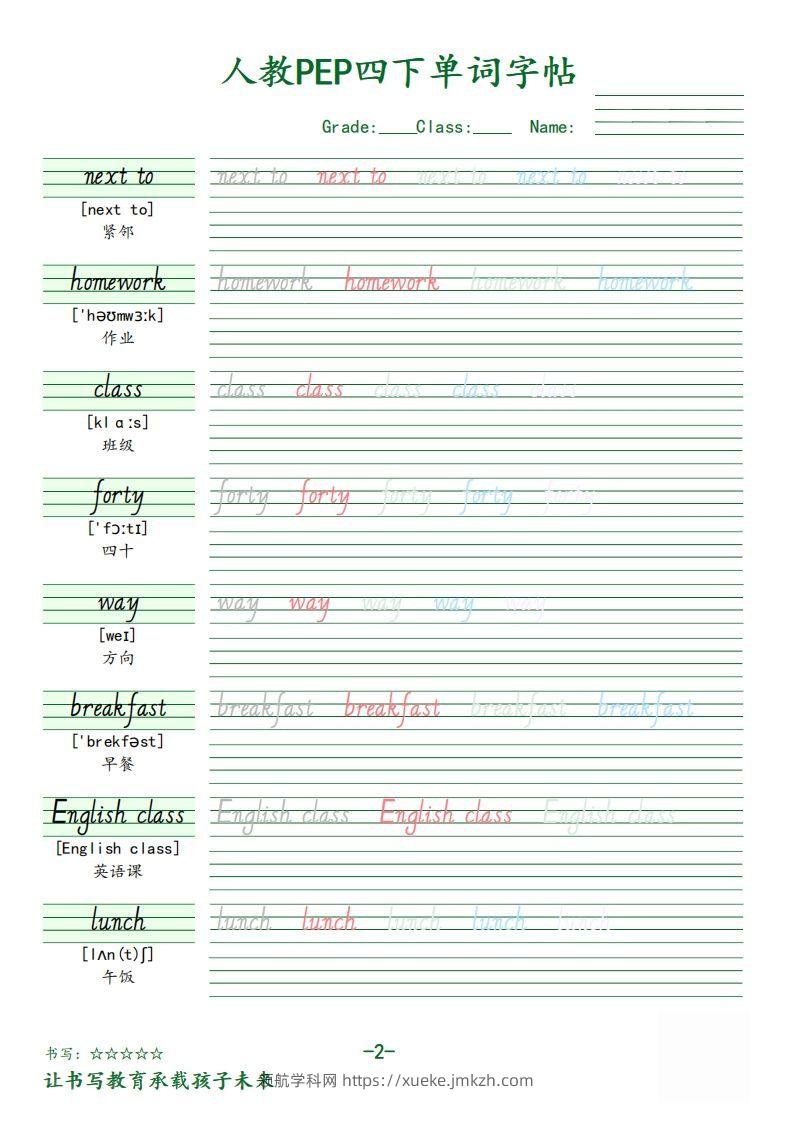 人教PEP四下单词字帖
Grade:____Class:____ Name:
next to next to next to next to next to next to
[next to]
紧邻
homework homework homework homework homework
['həʊmwɜːk]
作业
class class class class class class
[klɑːs]
班级
forty forty forty forty forty forty
['fɔːtɪ]
四十
way way way way way way
[weɪ]
方向
breakfast breakfast breakfast breakfast breakfast
['brekfəst]
早餐
English class English class English class English class
[English class]
英语课
lunch lunch lunch lunch lunch lunch
[lʌn(t)ʃ]
午饭
书写：☆☆☆☆☆
-2-
让书写教育承载孩子未来
领航学科网 https://xueke.jmkzh.com